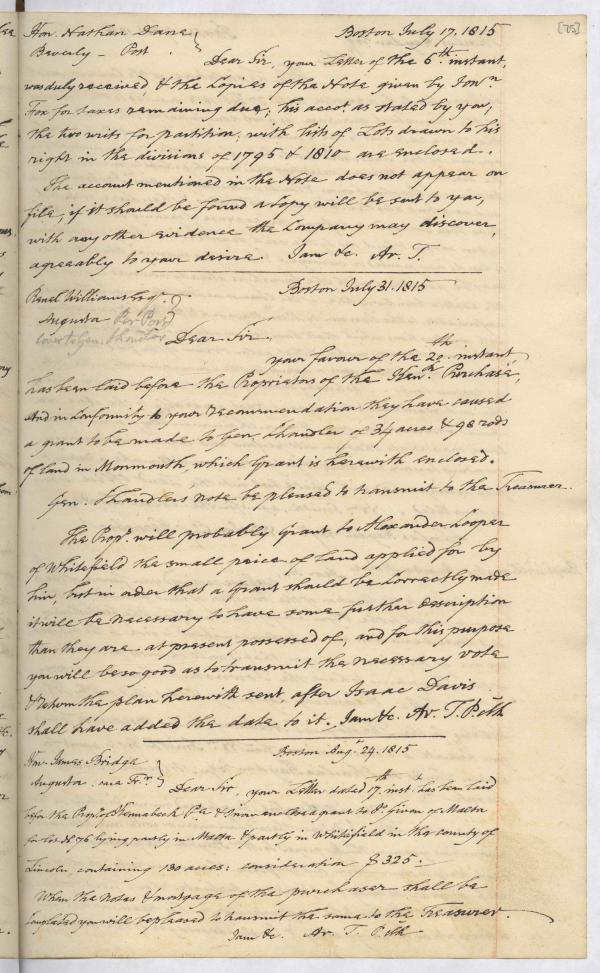 [75]
Hon. Nathan Dane
Boston July 17. 1815
Beverly - Post
Dear Sir, your Letter of the 6th instant,
was duly received, & the Copies of the Note given by Jonn.
Fox for taxes remaining due, his accot. as stated by you,
the two writs for partition, with lists of Lots drawn to his
right in the divisions of 1795 & 1810 are enclosed.
The account mentioned in the Note does not appear on
file, if it should be found a Copy will be sent to you,
with any other evidence the Company may discover,
agreeably to your desire. I am &c. Ar. T.
Boston July 31. 1815
Reuel Williams Esqr.
Augusta Per Post
Cover to Gen. Chandler
Dear Sir,
your favour of the 20th instant
has been laid before the Proprietors of the Kenn. Purchase,
and in conformity to your recommendation they have caused
a grant to be made to Gen. Chandler of 34 acres & 98 rods
of land in Monmouth, which Grant is herewith enclosed.
Gen. Chandlers note be pleased to transmit to the Treasurer.
The Propr. will probably Grant to Alexander Cooper
of Whitefield the small peice of land applied for by
him, but in order that a Grant should be correctly made
it will be necessary to have some further description
than they are at present possessed of, and for this purpose
you will be so good as to transmit the necessary vote
& return the plan herewith sent, after Isaac Davis
shall have added the date to it. I am &c. Ar. T. P. Clk
Boston Augt. 24. 1815
Hon. James Bridge
Augusta
Dear Sir, your Letter dated 17th inst. has been laid
before the Propr. of Kennebeck Pe. & I now enclose a grant to of Malta
for lot No. 76 lying partly in Malta & partly in Whitefield in the county of
Lincoln, containing 130 acres: consideration $325.
When the notes & mortgage of the purchaser shall be
completed you will be pleased to transmit the same to the Treasurer.
I am &c. Ar. T. P. Clk.